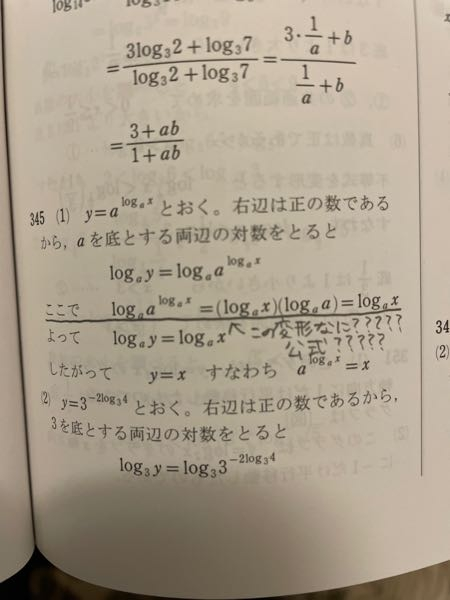 = (3log₃2+log₃7)/(log₃2+log₃7) = (3・1/a+b)/(1/a+b)
= (3+ab)/(1+ab)
345 (1) y=a^{log_a x} とおく。右辺は正の数である
から，a を底とする両辺の対数をとると
log_a y=log_a a^{log_a x}
ここで log_a a^{log_a x}=(log_a x)(log_a a)=log_a x
よって log_a y=log_a x ↖この変形なに?????
公式?????
したがって y=x すなわち a^{log_a x}=x
(2) y=3^{-2log₃4} とおく。右辺は正の数であるから，
3を底とする両辺の対数をとると
log₃y=log₃3^{-2log₃4}
34
(2)